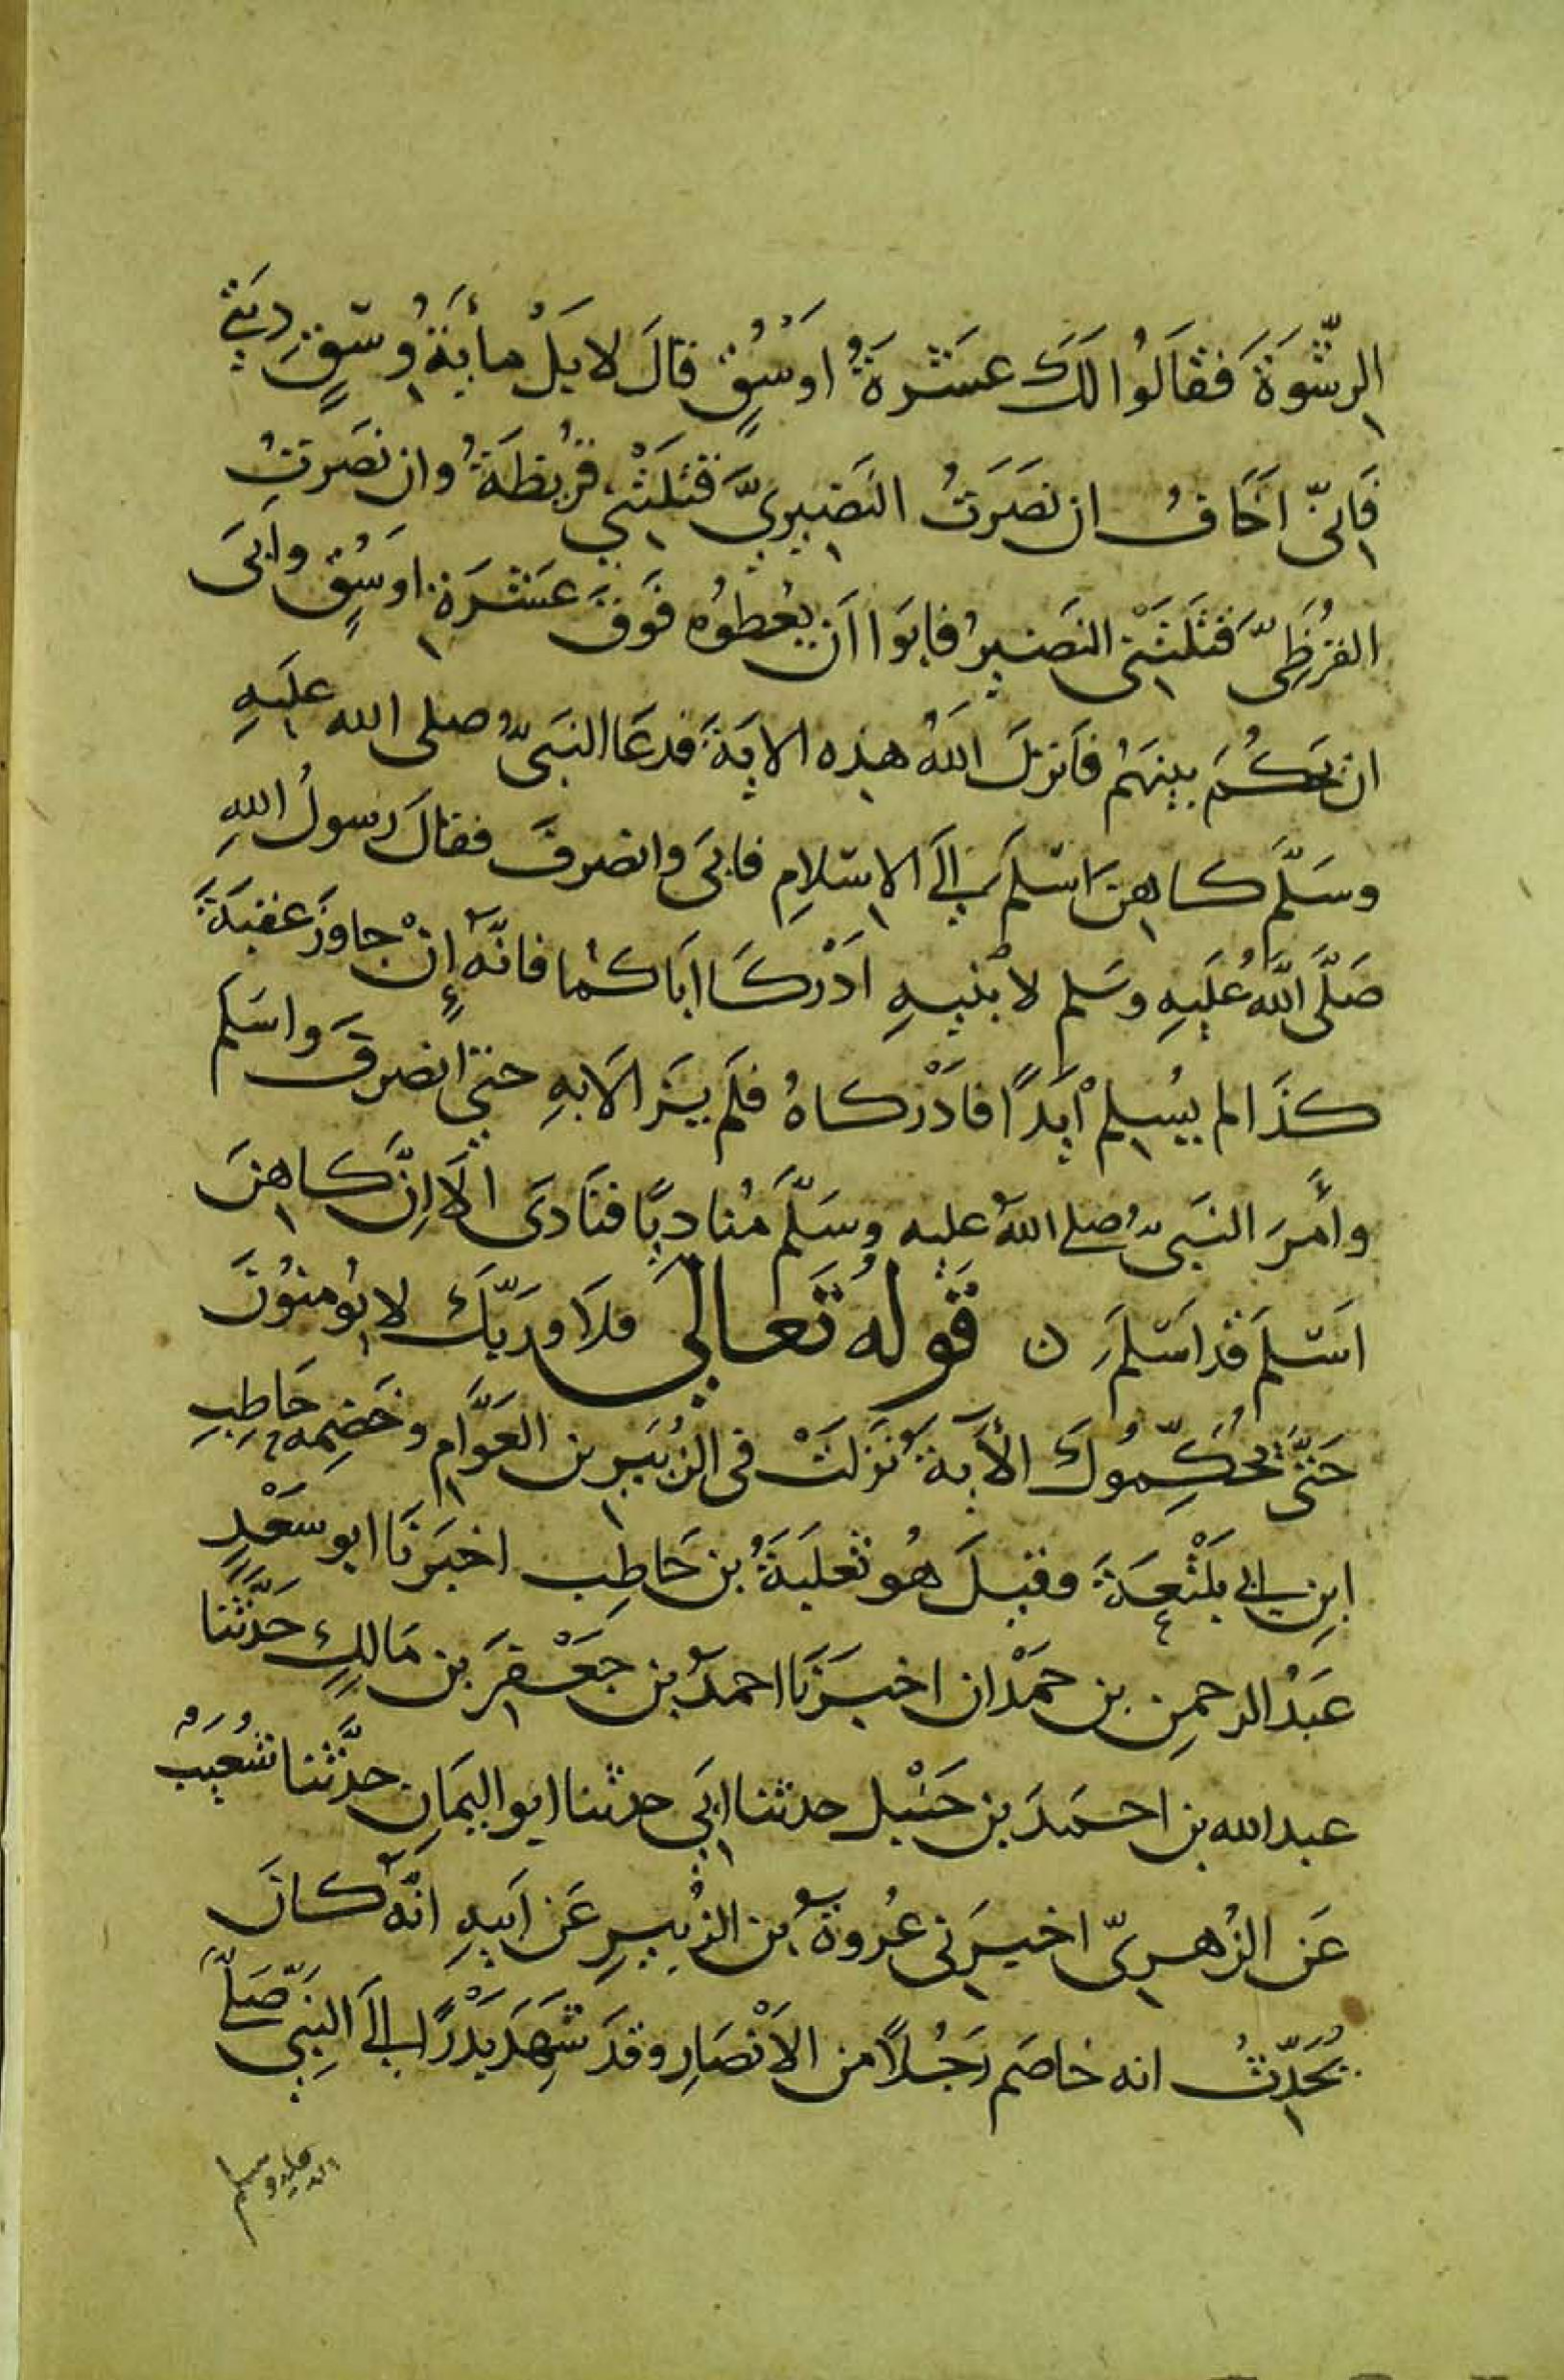 الرِّشْوَةَ فَقَالُوا لَكَ عَشَرَةُ اَوْسُقٍ قالَ لا بَلْ مأيَةُ وُسْقٍ دِيَتي
فَاِنّى اَخَافُ ان نَصَرتُ النَضِيرِيَّ قَتَلَتْنِي قُرَيْظَةُ وان نصَرتُ
القُرَظِىَّ قَتَلَتْنى النَضيرُ فابَوا اَن يُعْطوُه فَوقَ عَشَرَة اوسُقٍ وابَى
ان يَحكُمَ بينَهُم فاَنزلَ اللهُ هذه الايَةَ فدعَا النبَىُّ صلى الله عليَهِ
وسَلَّمَ كاهِنَ اسْلَم اِلَى الاِسْلامِ فابَى وانصرفَ فقالَ رَسولُ اللهِ
صَلَّى اللَّهُ عَلَيهِ وسَلم لابْنَيهِ اَدْرِكَا اباكُما فانَّهُ إِنْ جاوَزَ عقبَةَ
كذَا لم يُسْلِمْ اَبَدًا فادْركاهُ فلَم يَزَالا بهِ حتى انصرفَ واسَلمَ
وأمرَ النَبىُّ صلى اللهُ عليه وسَلَّمَ مُناديًا فنَادَى اَلَا اِنَّ كاهِنَ
اَسْلمَ قد اَسْلَمَ ن قَولهُ تَعالى فلَا وربِّكَ لا يُومنوُنَ
حَتَّى يُحَكِّمُوكَ الأَيَةُ نَزَلَتْ فى الزُبَير بن العَوَّامِ وخَصْمِهِ حَاطِبِ
ابنِ ابى بَلْتَعَةَ وقيلَ هُو ثعلبَةُ بن حَاطِب اخبَرنَا ابو سَعْدٍ
عَبدُ الرحمنِ بن حَمْدان اخبَرَنَا احمدُ بن جَعْفَرِ بن مَالِكٍ حَدَّثَنا
عبد الله بن احمَدَ بن حَنْبل حدثنا ابَى حدثنا ابو اليمَانِ حدَّثنا شُعَيبٌ
عَن الزُهرِىِّ اخبرَنى عُروةُ بن الزُبيرِ عَن اَبيهِ انّهُ كانَ
يُحَدِّثُ انه خاصَم رَجُلاً من الاَنْصَارِ وقدَ شَهِدَ بَدْرًا اِلَى النَبِيِّ صَلَّى
الله عليه وسلم